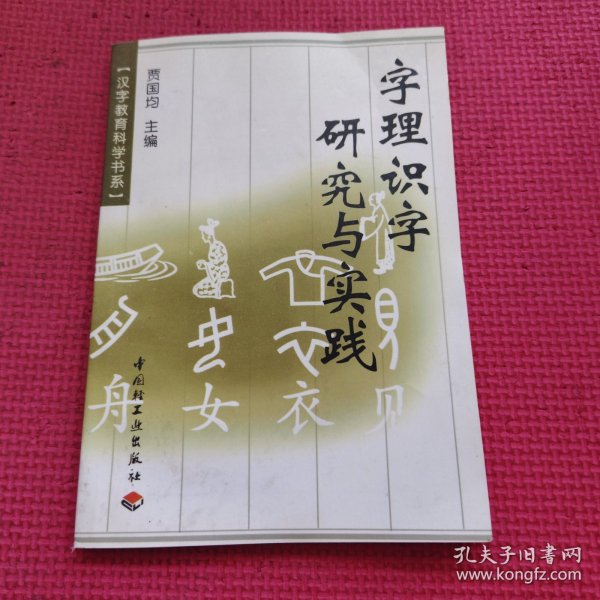 【汉字教育科学书系】
贾国均 主编
字理识字
研究与实践
舟 女 衣 见
中国轻工业出版社
孔夫子旧书网
www.kongfz.com